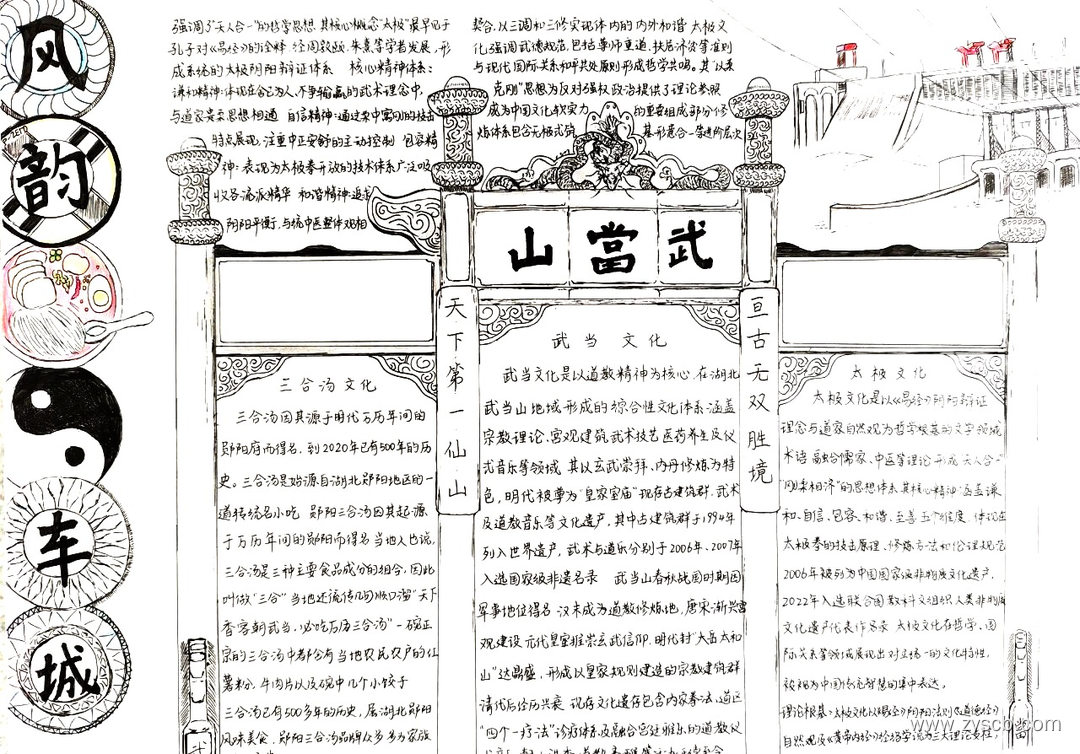 风
韵
车
城
强调了"天人合一"的哲学思想,其核心概念"太极"最早见于
孔子对《易经》的诠释 经周敦颐、朱熹等学者发展,形
成系统的太极阴阳辩证体系 核心精神体系:
谦和精神:体现在舍己为人、不争输赢的武术理念中,
与道家柔弱思想相通 自信精神:通过柔中寓刚的技击
特点展现,注重中正安舒的主动控制 包容精
神:表现为太极拳开放的技术体系广泛吸
收各流派精华 和谐精神:追求
阴阳平衡,与统中医整体观相
契合,以三调和三修实现体内的内外和谐 太极文
化强调武德规范,包括尊师重道、扶危济贫等准则
与现代国际关系和平共处原则形成哲学共鸣。其"以柔
克刚"思想为反对强权政治提供了理论参照
成为中国文化软实力 的重要组成部分修
炼体系包含无极式筑 其形意合一等进阶层次
山 當 武
天下第一仙山
亘古无双胜境
三合汤文化
三合汤因其源于明代万历年间的
郧阳府而得名,到2020年已有500年的历
史。三合汤是始源自湖北郧阳地区的一
道传统名小吃 郧阳三合汤因其起源
于万历年间的郧阳而得名当地人也说,
三合汤是三种主要食品成分的组合,因此
叫做"三合"当地还流传几句顺口溜"天下
香客朝武当,必吃万历三合汤"一碗正
宗的三合汤中都会有当地农民农户的红
薯粉,牛肉片以及碗中几个小饺子
三合汤已有500多年的历史,属湖北郧阳
风味美食,郧阳三合汤品牌众多多为家族
武当 文化
武当文化是以道教精神为核心,在湖北
武当山地域形成的综合性文化体系,涵盖
宗教理论、宫观建筑,武术技艺医药养生及仪
式音乐等领域 其以玄武崇拜、内丹修炼为特
色,明代被尊为"皇家室庙"现存古建筑群,武术
及道教音乐等文化遗产,其中古建筑群于1994年
列入世界遗产,武术与道乐分别于2006年、2007年
入选国家级非遗名录 武当山春秋战国时期因
军事地位得名 汉末成为道教修炼地,唐宋渐兴宫
观建设 元代皇室推崇玄武信仰,明代封"大岳太和
山"达鼎盛,形成以皇家规划建造的宗教建筑群
清代后经历兴衰 现存文化遗存包含内家拳法、道医
"四个一疗法"诊疗体系及融合宫廷雅乐的道教仪
太极文化
太极文化是以《易经》阴阳辩证
理念与道家自然观为哲学根基的文字领域
术语,融合儒家、中医等理论形成"天人合一"
"刚柔相济"的思想体系其核心精神涵盖谦
和、自信、包容、和谐、至善五个维度 体现在
太极拳的技击原理、修炼方法和伦理规范
2006年被列为中国国家级非物质文化遗产,
2022年入选联合国教科文组织人类非物质
文化遗产代表作名录 太极文化在哲学、国
际关系等领域展现出对立统一的文化特性,
被视为中国传统智慧的集中表达,
理论根基:太极文化以《易经》阴阳法则《道德经》
自然观及《黄帝内经》经络学说为三大理论支柱,
www.zyscb.com